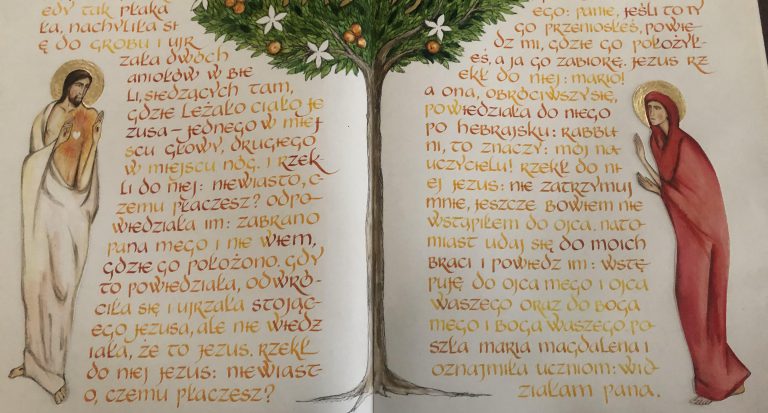 edy tak płaka
ła, nachyliła si
ę do grobu i ujr
zała dwóch
aniołów w bie
li, siedzących tam,
gdzie leżało ciało je
zusa – jednego w miej
scu głowy, drugiego
w miejscu nóg. i rzek-
li do niej: niewiasto, c-
zemu płaczesz? odpo-
wiedziała im: zabrano
pana mego i nie wiem,
gdzie go położono. gdy
to powiedziała, odwró-
ciła się i ujrzała stojąc-
ego jezusa, ale nie wiedz
iała, że to jezus. rzekł
do niej jezus: niewiast-
o, czemu płaczesz?
ego: panie, jeśli to ty
go przeniosłeś, powie-
dz mi, gdzie go położył-
eś, a ja go zabiorę. jezus rz
ekł do niej: mario!
a ona, obróciwszy się,
powiedziała do niego
po hebrajsku: rabbu
ni, to znaczy: mój na
uczycielu! rzekł do ni-
ej jezus: nie zatrzymuj
mnie, jeszcze bowiem nie
wstąpiłem do ojca. nato-
miast udaj się do moich
braci i powiedz im: wstę-
puję do ojca mego i ojca
waszego oraz do boga
mego i boga waszego. po-
szła maria magdalena i
oznajmiła uczniom: wid-
ziałam pana.